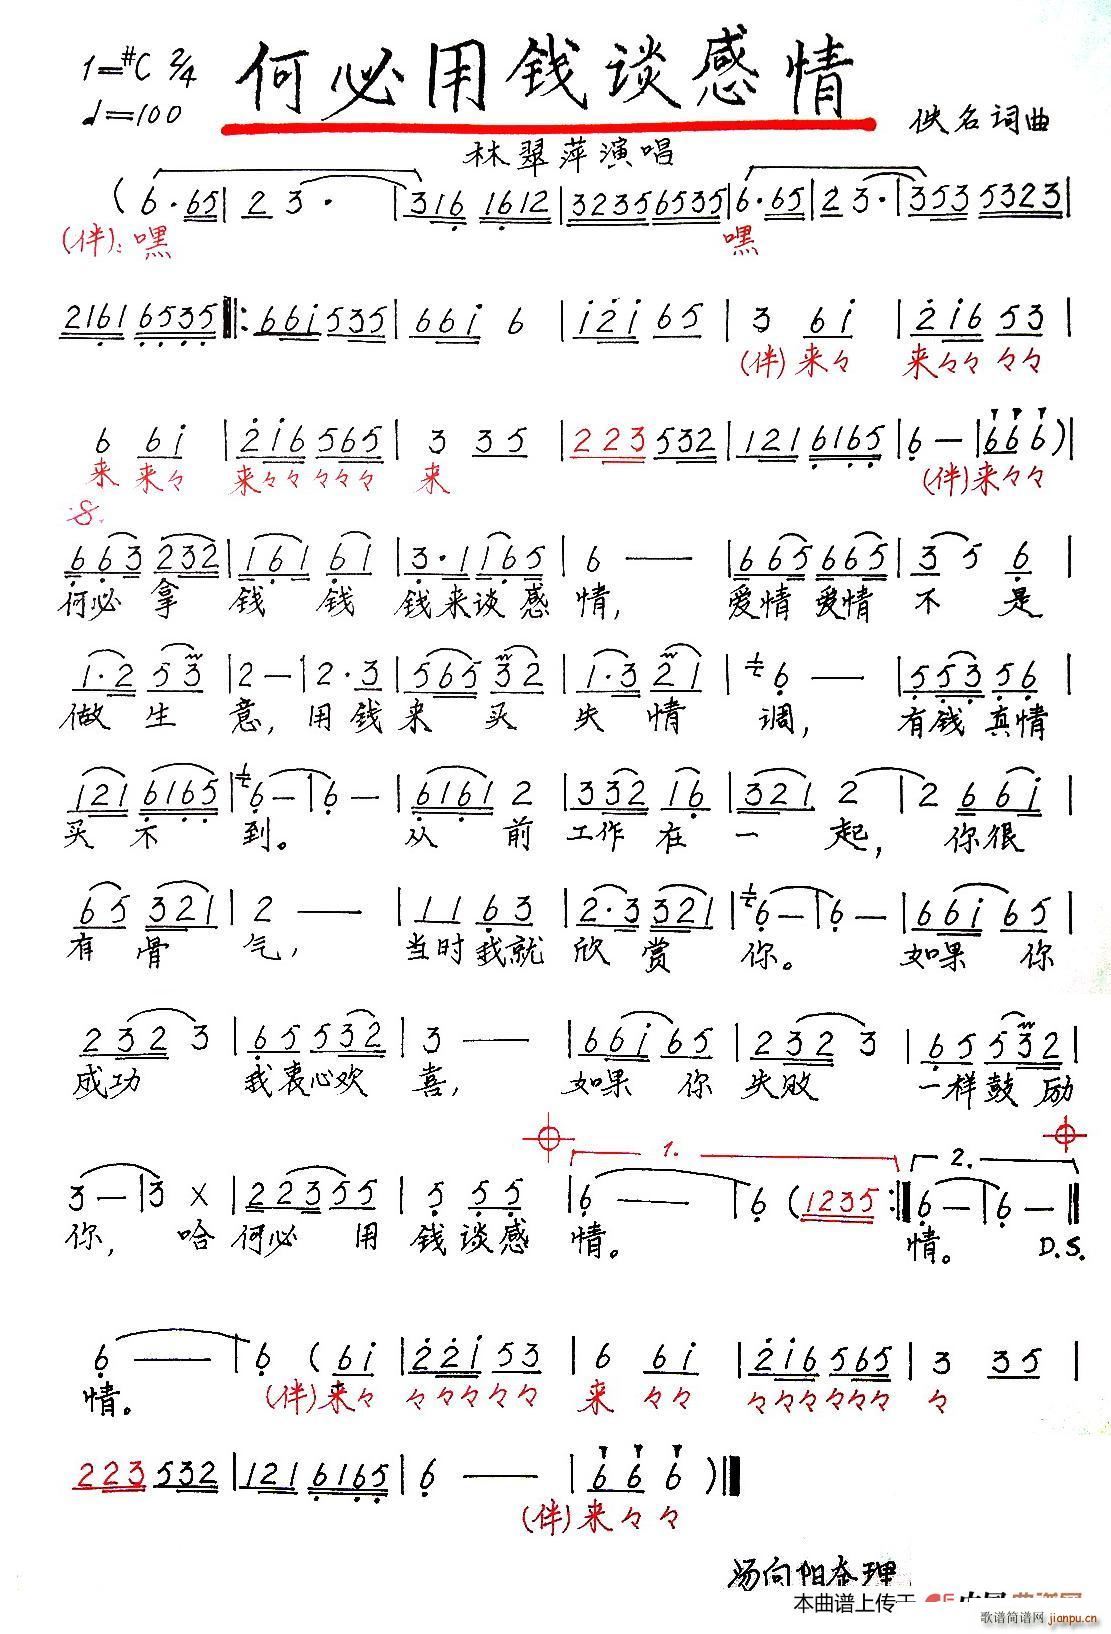 1=#C 2/4 何必用钱谈感情
♩=100 佚名词曲
林翠萍演唱
( 6·65 | 2 3· | 316 1612 | 32356535 | 6·65 | 2 3· | 353 5323 |
(伴): 嘿 嘿
2161 6535 ‖: 661 535 | 661 6 | 121 65 | 3 61 | 216 53 |
(伴) 来々 来々々 々々
6 61 | 216 565 | 3 35 | 223 532 | 121 6165 | 6 — | 6 6 6 ) |
来 来々 来々々 々々々 来 (伴) 来々々
663 232 | 161 61 | 3·1 1165 | 6 — — | 665 665 | 3 5 6 |
何必 拿 钱 钱 钱来谈感 情, 爱情 爱情 不 是
1·2 53 | 2 — | 2·3 | 565 32 | 1·3 21 | 6 — — | 553 56 |
做 生 意, 用钱来 买 失 情 调, 有钱真情
121 6165 | 6 — | 6 — | 6161 2 | 332 16 | 321 2 | 2 661 |
买 不 到。 从 前 工作在 一 起, 你很
65 321 | 2 — — | 11 63 | 2·3 321 | 6 — | 6 — | 661 65 |
有 骨 气, 当时我就 欣 赏 你。 如果 你
232 3 | 65 532 | 3 — — | 661 65 | 232 3 | 65 532 |
成功 我衷心欢 喜, 如果 你 失败 一样鼓励
1. 2.
3 — | 3 X | 223 55 | 5 55 | 6 — — | 6 ( 1235 :‖ 6 — | 6 — ‖
你, 哈 何必 用 钱谈感 情。 情。 D.S.
6 — — | 6 ( 61 | 221 53 | 6 61 | 216 565 | 3 35 |
情。 (伴) 来々 々々々々々 来 々々 々々々々々々 々
223 532 | 121 6165 | 6 — — | 6 6 6 ) ‖
(伴) 来 々 々
汤向阳奉理
本曲谱上传于
歌谱简谱网 jianpu.cn